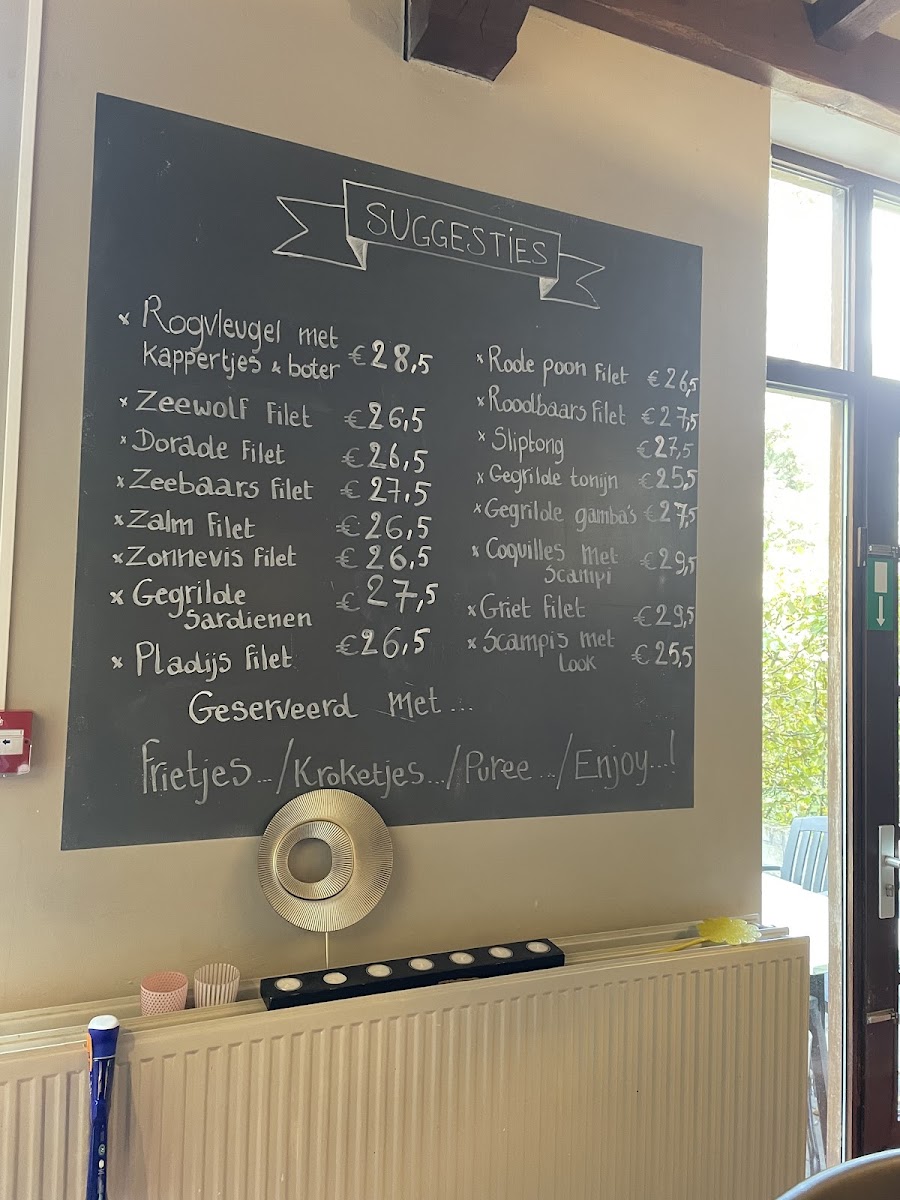 SUGGESTIES
x Rogvleugel met
kappertjes & boter €28,5
x Zeewolf Filet €26,5
x Dorade Filet €26,5
x Zeebaars Filet €27,5
x Zalm Filet €26,5
x Zonnevis Filet €26,5
x Gegrilde
Sardienen €27,5
x Pladijs Filet €26,5
x Rode poon Filet €26,5
x Roodbaars Filet €27,5
x Sliptong €27,5
x Gegrilde tonijn €25,5
x Gegrilde gamba's €27,5
x Coquilles met
Scampi €29,5
x Griet Filet €29,5
x Scampis met
Look €25,5
Geserveerd met...
Frietjes.../Kroketjes.../Puree.../Enjoy...!